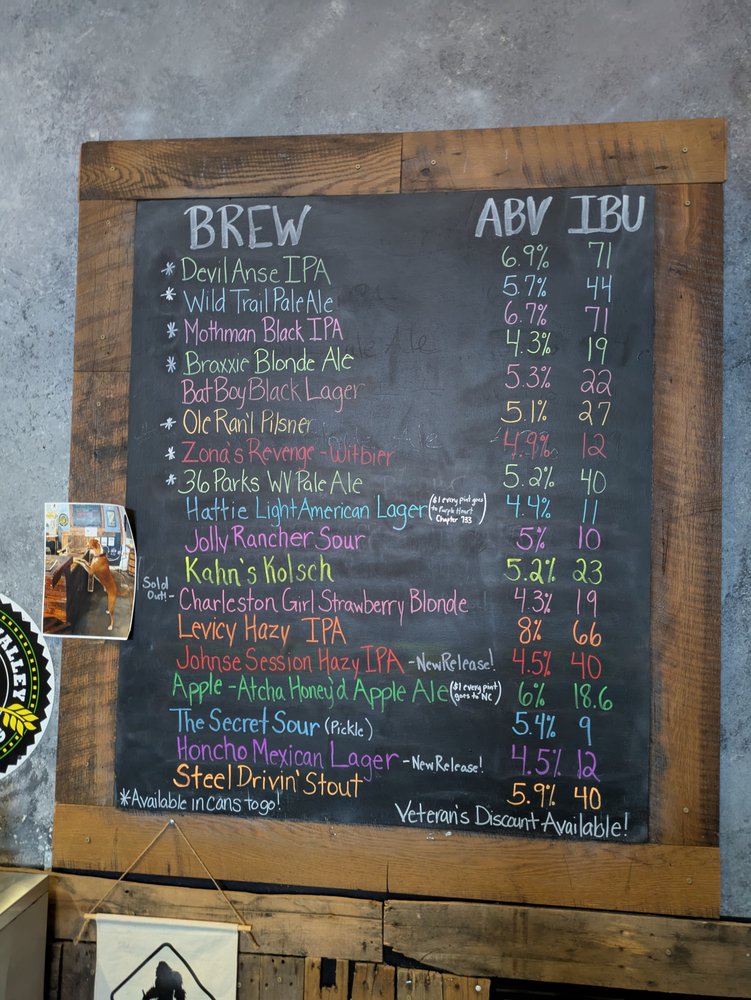 BREW ABV IBU
* Devil Anse IPA 6.9% 71
* Wild Trail Pale Ale 5.7% 44
* Mothman Black IPA 6.7% 71
* Braxxie Blonde Ale 4.3% 19
Bat Boy Black Lager 5.3% 22
* Ole Ran'l Pilsner 5.1% 27
* Zona's Revenge - Witbier 4.9% 12
* 36 Parks WV Pale Ale 5.2% 40
Hattie Light American Lager ($1 every pint goes to Purple Heart Chapter 733) 4.4% 11
Jolly Rancher Sour 5% 10
Kahn's Kolsch 5.2% 23
Sold Out! - Charleston Girl Strawberry Blonde 4.3% 19
Levicy Hazy IPA 8% 66
Johnse Session Hazy IPA - New Release! 4.5% 40
Apple-Atcha Honey'd Apple Ale ($1 every pint goes to NC) 6% 18.6
The Secret Sour (Pickle) 5.4% 9
Honcho Mexican Lager - New Release! 4.5% 12
Steel Drivin' Stout 5.9% 40
*Available in cans to go!
Veteran's Discount Available!
VALLEY